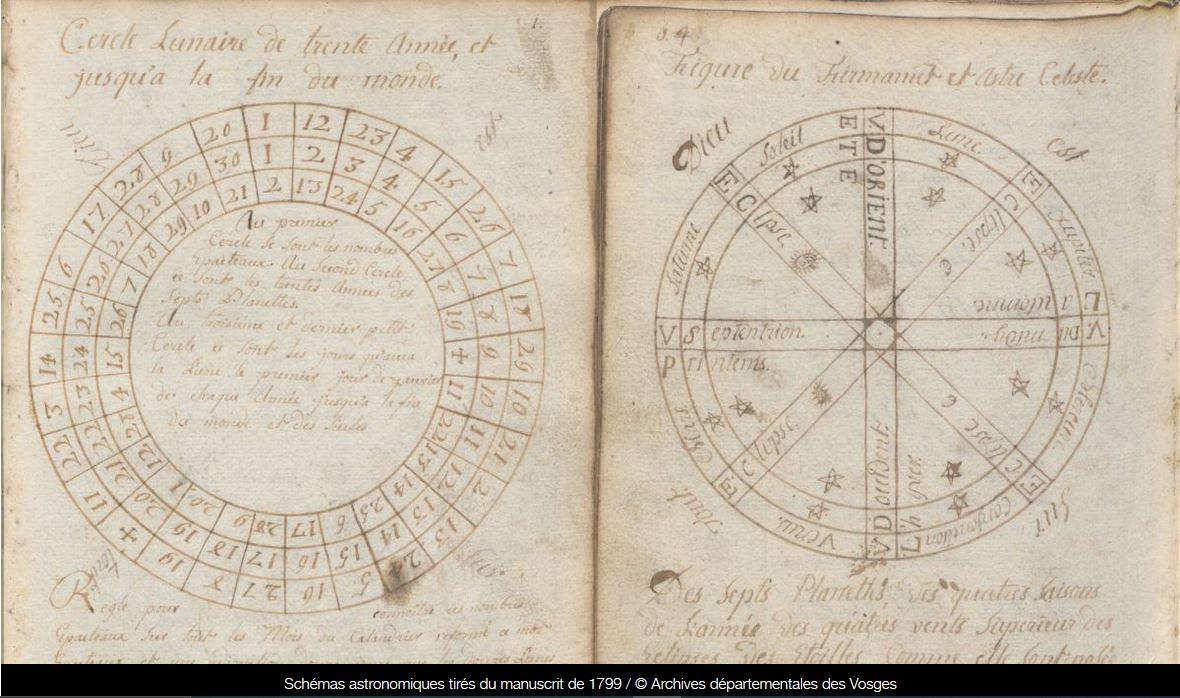 1.
Cercle Lunaire de trente Année, et
jusqu'a la fin du monde.
Dieu
est
1 12 23 4 15 26 7 18 29 10 21 2 13 24 5 16 27 8 19 + 11 22 3 14 25 6 17 28 9 20
1 2 3 4 5 6 7 8 9 10 11 12 13 14 15 16 17 18 19 20 21 22 23 24 25 26 27 28 29 30
2 13 24 5 16 27 8 19 + 11 22 13 14 25 6 17 28 9 20 1 12 23 4 15 26 7 18 29 10 21
Au premier
Cercle se sont les nombres
Epacteaux. Au Second Cercle
ce sont les trentes Années des
Septs Planettes.
Au troisieme et dernier petit
Cercle ce sont les jours qu'aura
la Lune le premier jour de Janvier
de chaque Année jusqu'a la fin
du monde et des Siecles
Regle pour connoitre ces nombres
Epacteaux Sur tout les Mois du Calendrier reformé a mot
64
Figure du Firmamet et astre Celeste.
Dieu
est
Sur
tout
Soleil
Lune
Jupiter
Mercure
Conjonction
Venus
Mars
Saturne
V D'ORIENT.
ETE
Eclipse
Eclipse
Eclipse
Eclipse
V Septentrion.
Printems.
L'automne
V. Du midy
hyver
Des Septs Planeths Des quatres Saisons
de L'année des quatrés vents Superieur des
Eclipses Des Etoilles Comme elle sont posée
Schémas astronomiques tirés du manuscrit de 1799 / © Archives départementales des Vosges